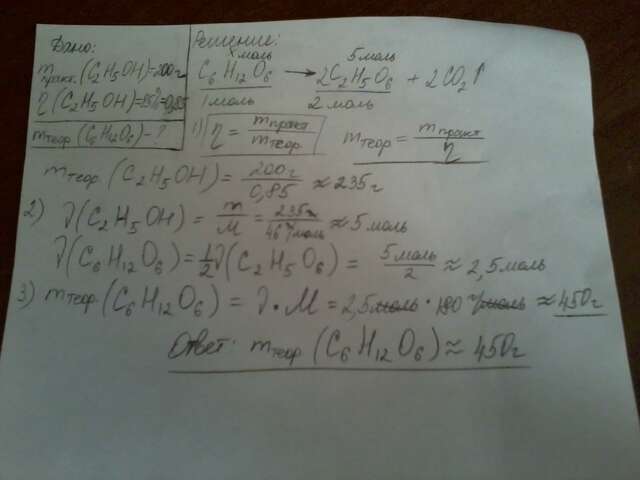 Дано:
mпракт.(C2H5OH)=200г
η(C2H5OH)=85%=0,85
mтеор(C6H12O6)-?
Решение:
x моль 5 моль
C6H12O6 → 2C2H5O6 + 2CO2↑
1 моль 2 моль
1) η = mпракт/mтеор. mтеор = mпракт/η
mтеор(C2H5OH) = 200г/0,85 ≈ 235г
2) ν(C2H5OH) = m/M = 235г/46 г/моль ≈ 5 моль
ν(C6H12O6) = 1/2 ν(C2H5O6) = 5 моль/2 ≈ 2,5 моль
3) mтеор.(C6H12O6) = ν·M = 2,5моль·180 г/моль ≈ 450г
Ответ: mтеор(C6H12O6) ≈ 450г